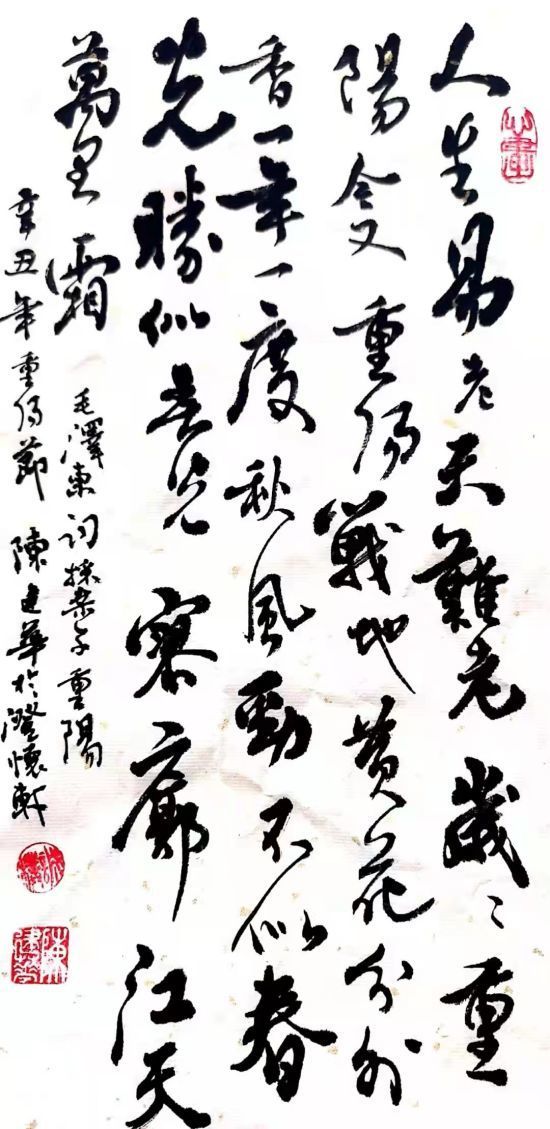 人生易老天難老歲々重
陽今又重陽戰地黃花分外
香一年一度秋風勁不似春
光勝似春光寥廓江天
萬里霜
毛澤東詞採桑子重陽
辛丑年重陽節陳建華於澄懷軒
陳建華